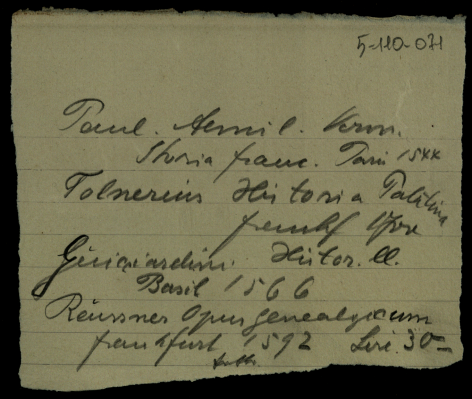 5-110-071
Paul. Aemil. Veron.
Storia franc. Paris 1544
Tolnerius Historia Palatina
frankf
Guicciardini Histor. ll.
Basil 1566
Reussner Opus genealogicum
frankfurt 1592 Lire 30-